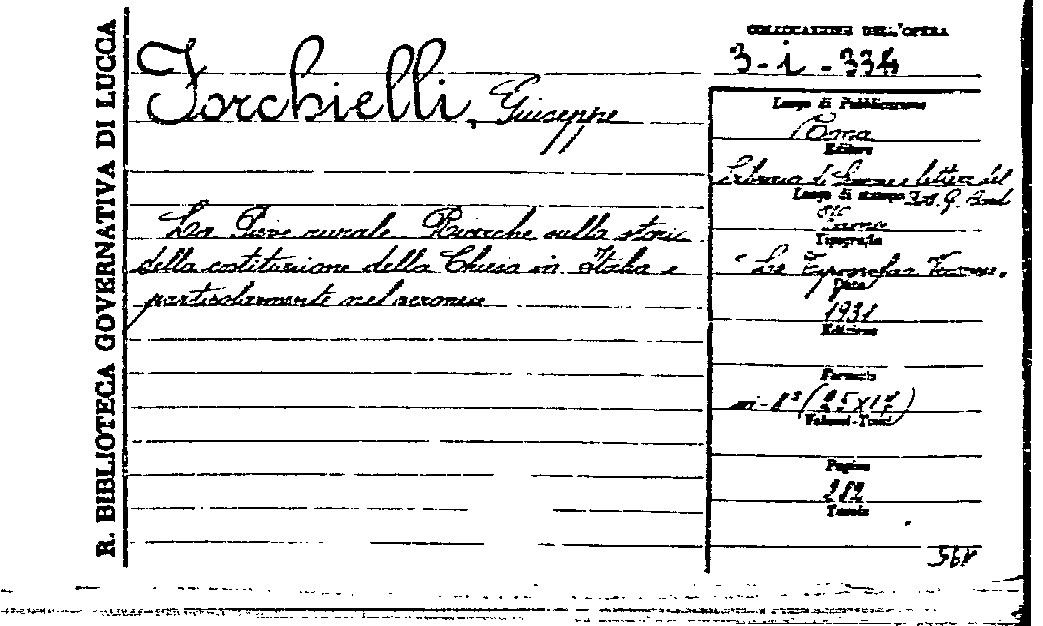 R. BIBLIOTECA GOVERNATIVA DI LUCCA
COLLOCAZIONE DELL'OPERA
3-i-334
Forchielli, Giuseppe
La Pieve rurale. Ricerche sulla storia
della costituzione della Chiesa in Italia e
particolarmente nel veronese
Luogo di Pubblicazione
Roma
Editore
Libreria di Scienze e lettere del
Luogo di stampa Dott. G. Bardi
Roma
Tipografia
Data
1931
Edizione
Formato
in-8° (25x17)
Volumi-Tomi
Pagine
282
Tavole